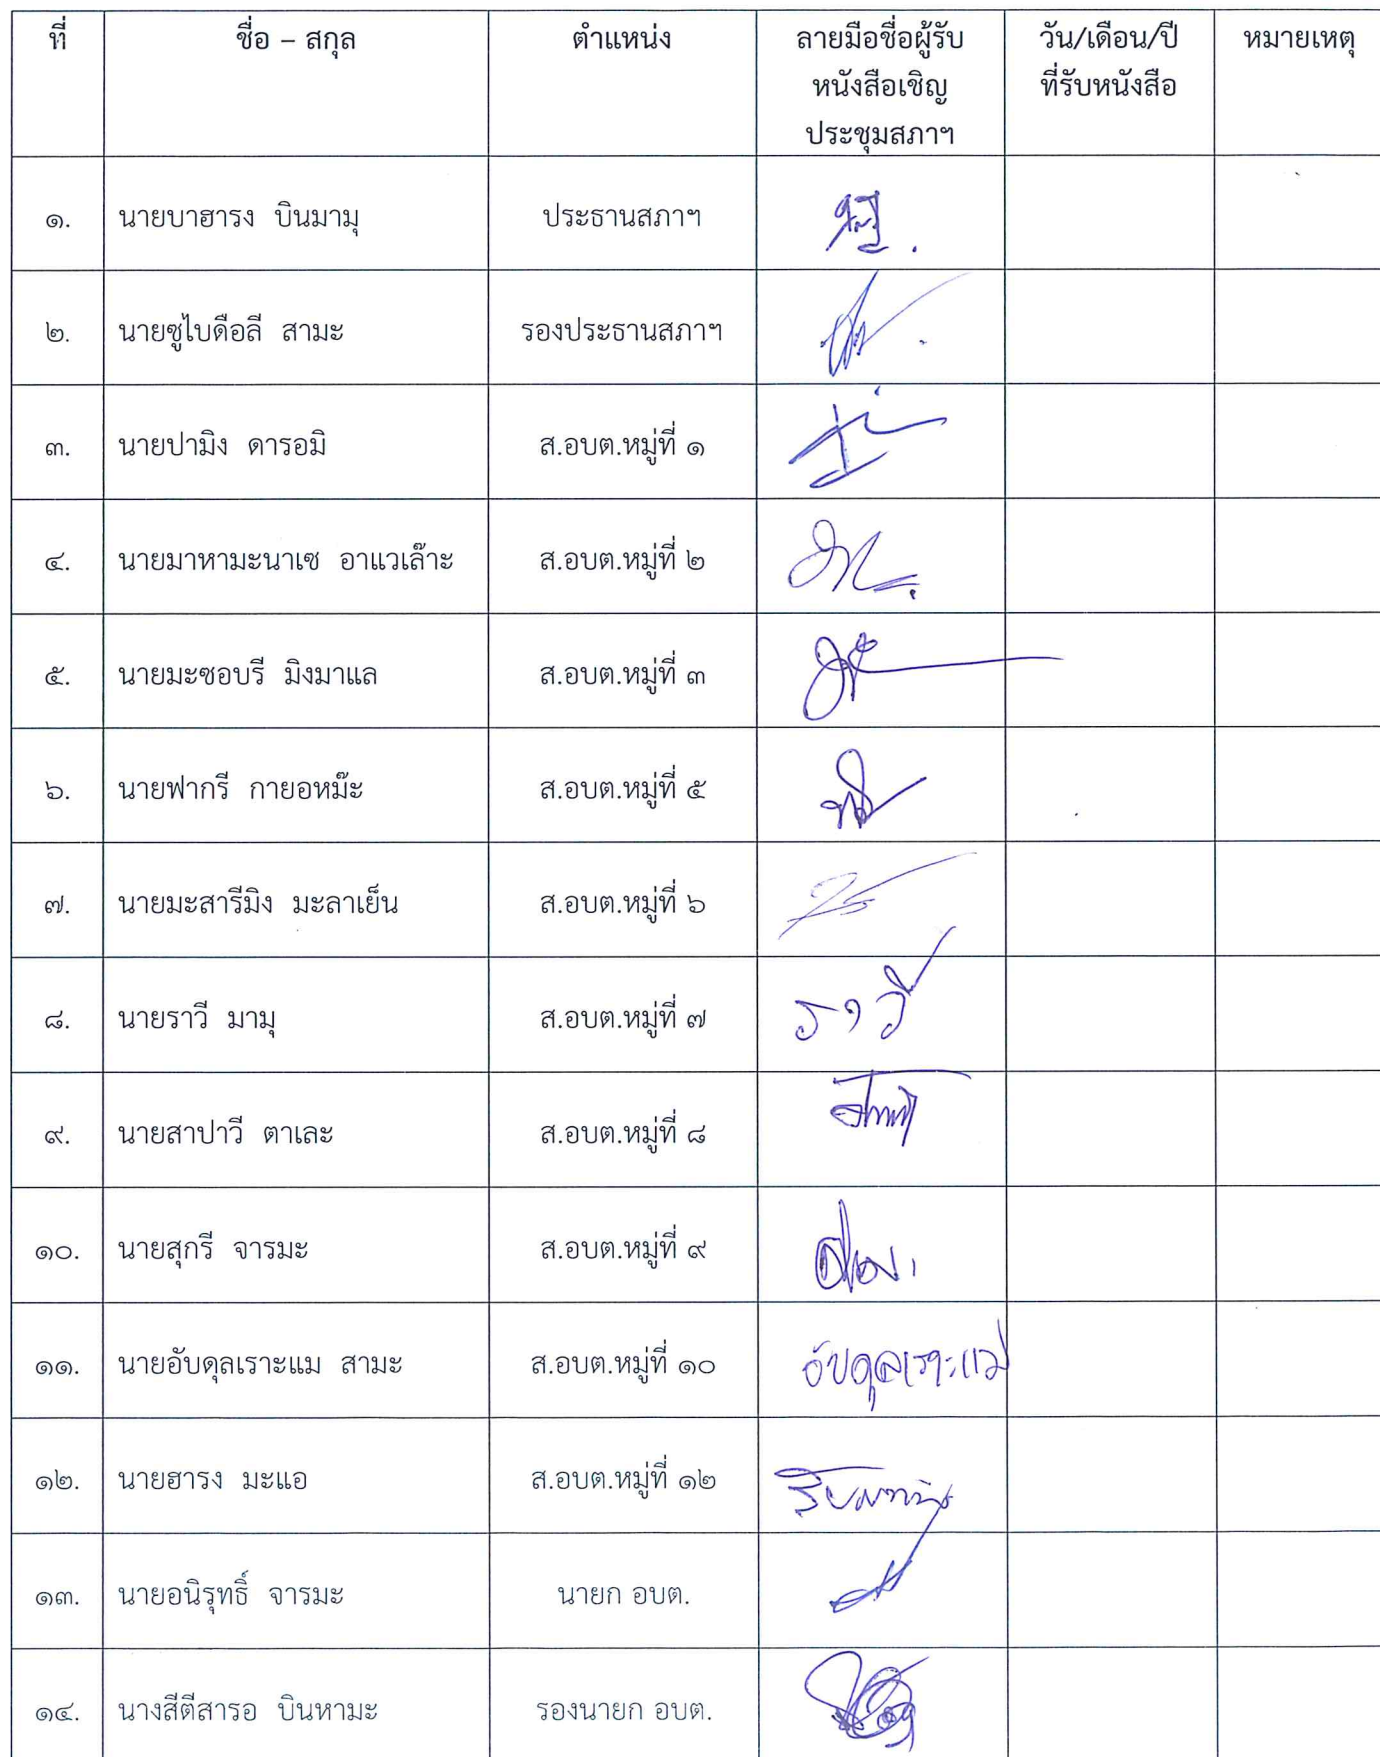 ที่ ชื่อ – สกุล ตำแหน่ง ลายมือชื่อผู้รับ วัน/เดือน/ปี หมายเหตุ
หนังสือเชิญ ที่รับหนังสือ
ประชุมสภาฯ
๑. นายบาฮารง บินมามุ ประธานสภาฯ
๒. นายซูไบดือลี สามะ รองประธานสภาฯ
๓. นายปามิง ดารอมิ ส.อบต.หมู่ที่ ๑
๔. นายมาหามะนาเซ อาแวเล๊าะ ส.อบต.หมู่ที่ ๒
๕. นายมะซอบรี มิงมาแล ส.อบต.หมู่ที่ ๓
๖. นายฟากรี กายอหม๊ะ ส.อบต.หมู่ที่ ๕
๗. นายมะสารีมิง มะลาเย็น ส.อบต.หมู่ที่ ๖
๘. นายราวี มามุ ส.อบต.หมู่ที่ ๗ ราวี
๙. นายสาปาวี ตาเละ ส.อบต.หมู่ที่ ๘
๑๐. นายสุกรี จารมะ ส.อบต.หมู่ที่ ๙
๑๑. นายอับดุลเราะแม สามะ ส.อบต.หมู่ที่ ๑๐ อับดุลเราะแม
๑๒. นายฮารง มะแอ ส.อบต.หมู่ที่ ๑๒
๑๓. นายอนิรุทธิ์ จารมะ นายก อบต.
๑๔. นางสีตีสารอ บินหามะ รองนายก อบต.